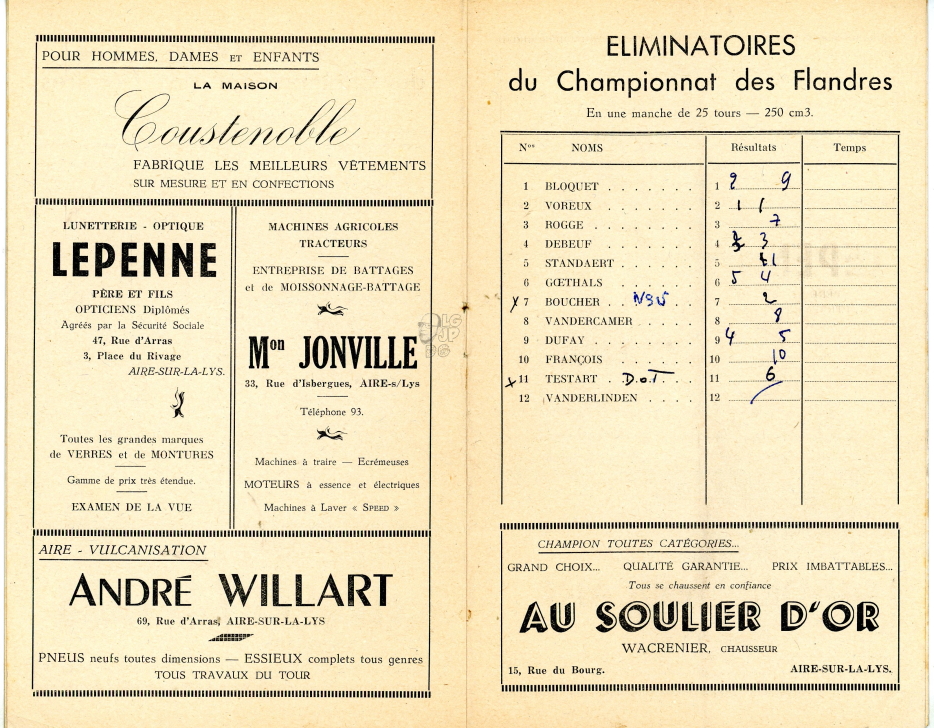 POUR HOMMES, DAMES ET ENFANTS
LA MAISON
Coustenoble
FABRIQUE LES MEILLEURS VÊTEMENTS
SUR MESURE ET EN CONFECTIONS
LUNETTERIE - OPTIQUE
LEPENNE
PÈRE ET FILS
OPTICIENS Diplômés
Agréés par la Sécurité Sociale
47, Rue d'Arras
3, Place du Rivage
AIRE-SUR-LA-LYS.
Toutes les grandes marques
de VERRES et de MONTURES
Gamme de prix très étendue.
EXAMEN DE LA VUE
MACHINES AGRICOLES
TRACTEURS
ENTREPRISE DE BATTAGES
et de MOISSONNAGE-BATTAGE
Mon JONVILLE
33, Rue d'Isbergues, AIRE-s/Lys
Téléphone 93.
Machines à traire — Ecrémeuses
MOTEURS à essence et électriques
Machines à Laver « SPEED »
AIRE - VULCANISATION
ANDRÉ WILLART
69, Rue d'Arras, AIRE-SUR-LA-LYS
PNEUS neufs toutes dimensions — ESSIEUX complets tous genres
TOUS TRAVAUX DU TOUR
ELIMINATOIRES
du Championnat des Flandres
En une manche de 25 tours — 250 cm3.
Nos NOMS Résultats Temps
1 BLOQUET . . . . . . . 1 2 9
2 VOREUX . . . . . . . 2 1 1
3 ROGGE . . . . . . . 3 7
4 DEBEUF . . . . . . . 4 3
5 STANDAERT . . . . . . 5 11
6 GŒTHALS . . . . . . 6 5 4
x 7 BOUCHER . NSU . 7 2
8 VANDERCAMER . . . . 8 8
9 DUFAY . . . . . . . 9 4 5
10 FRANÇOIS . . . . . . 10 10
x 11 TESTART . D.O.T. . . 11 6
12 VANDERLINDEN . . . . 12
CHAMPION TOUTES CATÉGORIES...
GRAND CHOIX... QUALITÉ GARANTIE... PRIX IMBATTABLES...
Tous se chaussent en confiance
AU SOULIER D'OR
WACRENIER, CHAUSSEUR
15, Rue du Bourg. AIRE-SUR-LA-LYS.